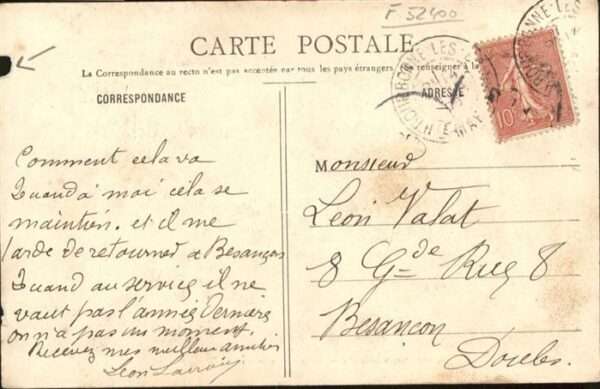 F 52400
CARTE POSTALE
La Correspondance au recto n'est pas acceptée par tous les pays étrangers. renseigner à la
CORRESPONDANCE
ADRESSE
BONNE-LES
HTE MAR
10
Comment cela va
Quand à moi cela se
maintien. et il me
tarde de retourner a Besançon
Quand au service il ne
vaut pas l'année dernière
on n'a pas un moment.
Recevez mes meilleurs amitiés
Léon
Monsieur
Léon Valat
8 Gde Rue 8
Besançon
Doubs.